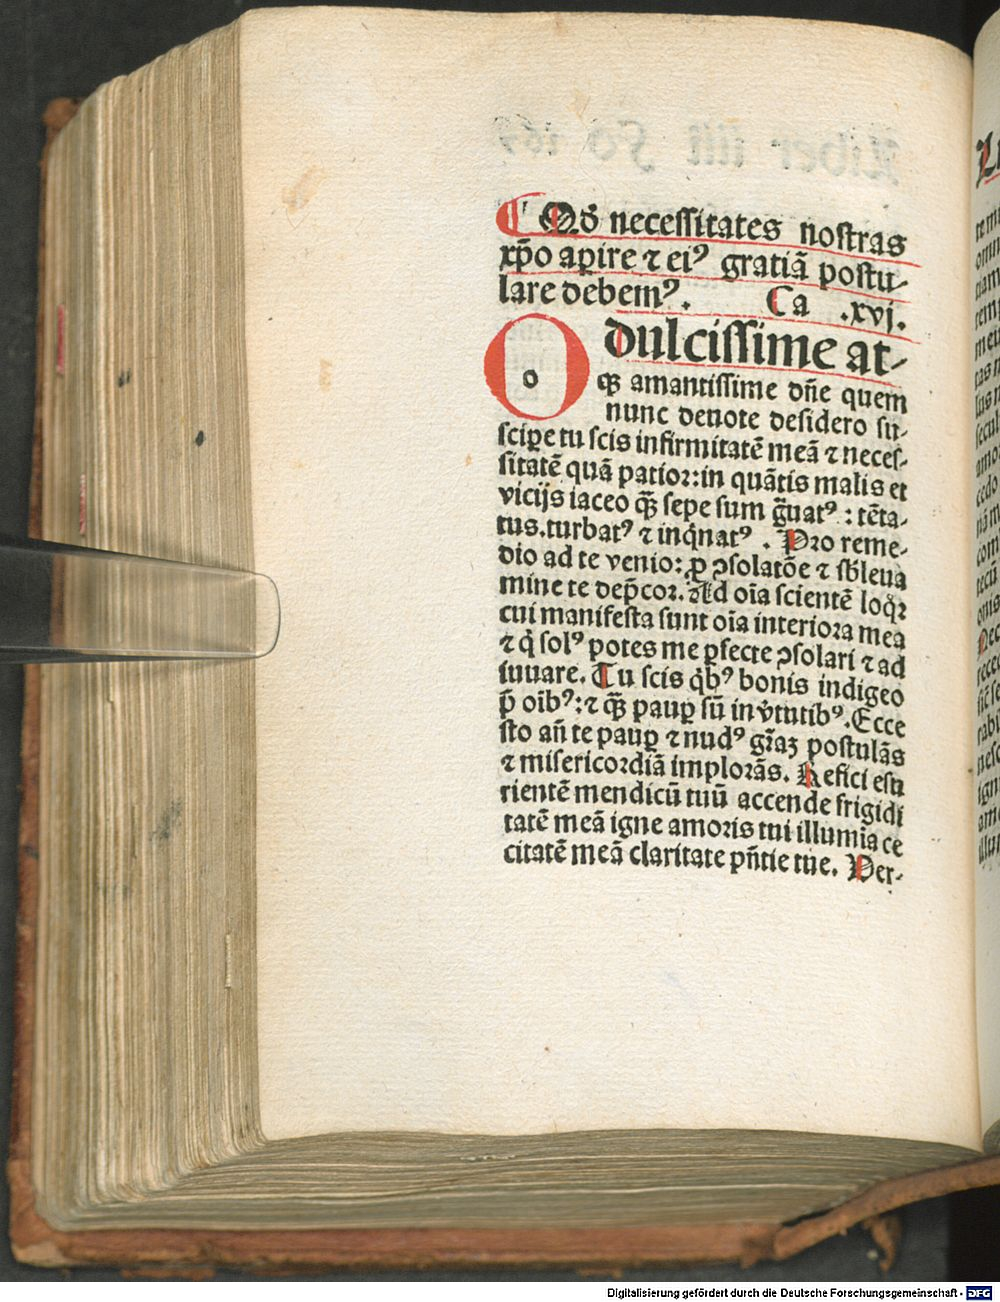 ¶ Qđ necessitates nostras
xp̄o aꝑire ⁊ eiꝰ gratiā postu⸗
lare debemꝰ. Ca .xvj.
O dulcissime at⸗
qꝫ amantissime dn̄e quem
nunc deuote desidero su⸗
sciꝑe tu scis infirmitatē meā ⁊ neces⸗
sitatē quā patior: in quātis malis et
vicijs iaceo qꝫ̄ sepe sum gͣuatꝰ : tēta⸗
tus. turbatꝰ ⁊ inqͥnatꝰ . Pro reme⸗
dio ad te venio: ꝓ ꝯsolatōe ⁊ sb̄leua
mine te dep̄cor. Ad oīa scientē loqͦꝛ
cui manifesta sunt oīa interiora mea
⁊ qͥ solꝰ potes me ꝑfecte ꝯsolari ⁊ ad
iuuare. Tu scis qͥbꝰ bonis indigeo
p̄ oībꝰ: ⁊ qꝫ̄ pauꝑ sū in v̓tutibꝰ. Ecce
sto an̄ te pauꝑ ⁊ nudꝰ gr̄aꝫ postulās
⁊ misericordiā implorās. Refici esu
rientē mendicū tuū accende frigidi
tatē meā igne amoris tui illumīa ce
citatē meā claritate pn̄tie tue. Per⸗
Digitalisierung gefördert durch die Deutsche Forschungsgemeinschaft - DFG